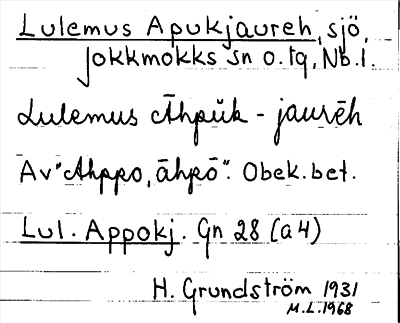 Lulemus Apukjaureh, sjö,
Jokkmokks sn o. tg, Nb. l.
Lulemus Āhpŭk - jaurēh
Av "Ahppo, āhpō". Obek. bet.
Lul. Appokj. Gn 28 (a4)
H. Grundström 1931
M.L. 1968